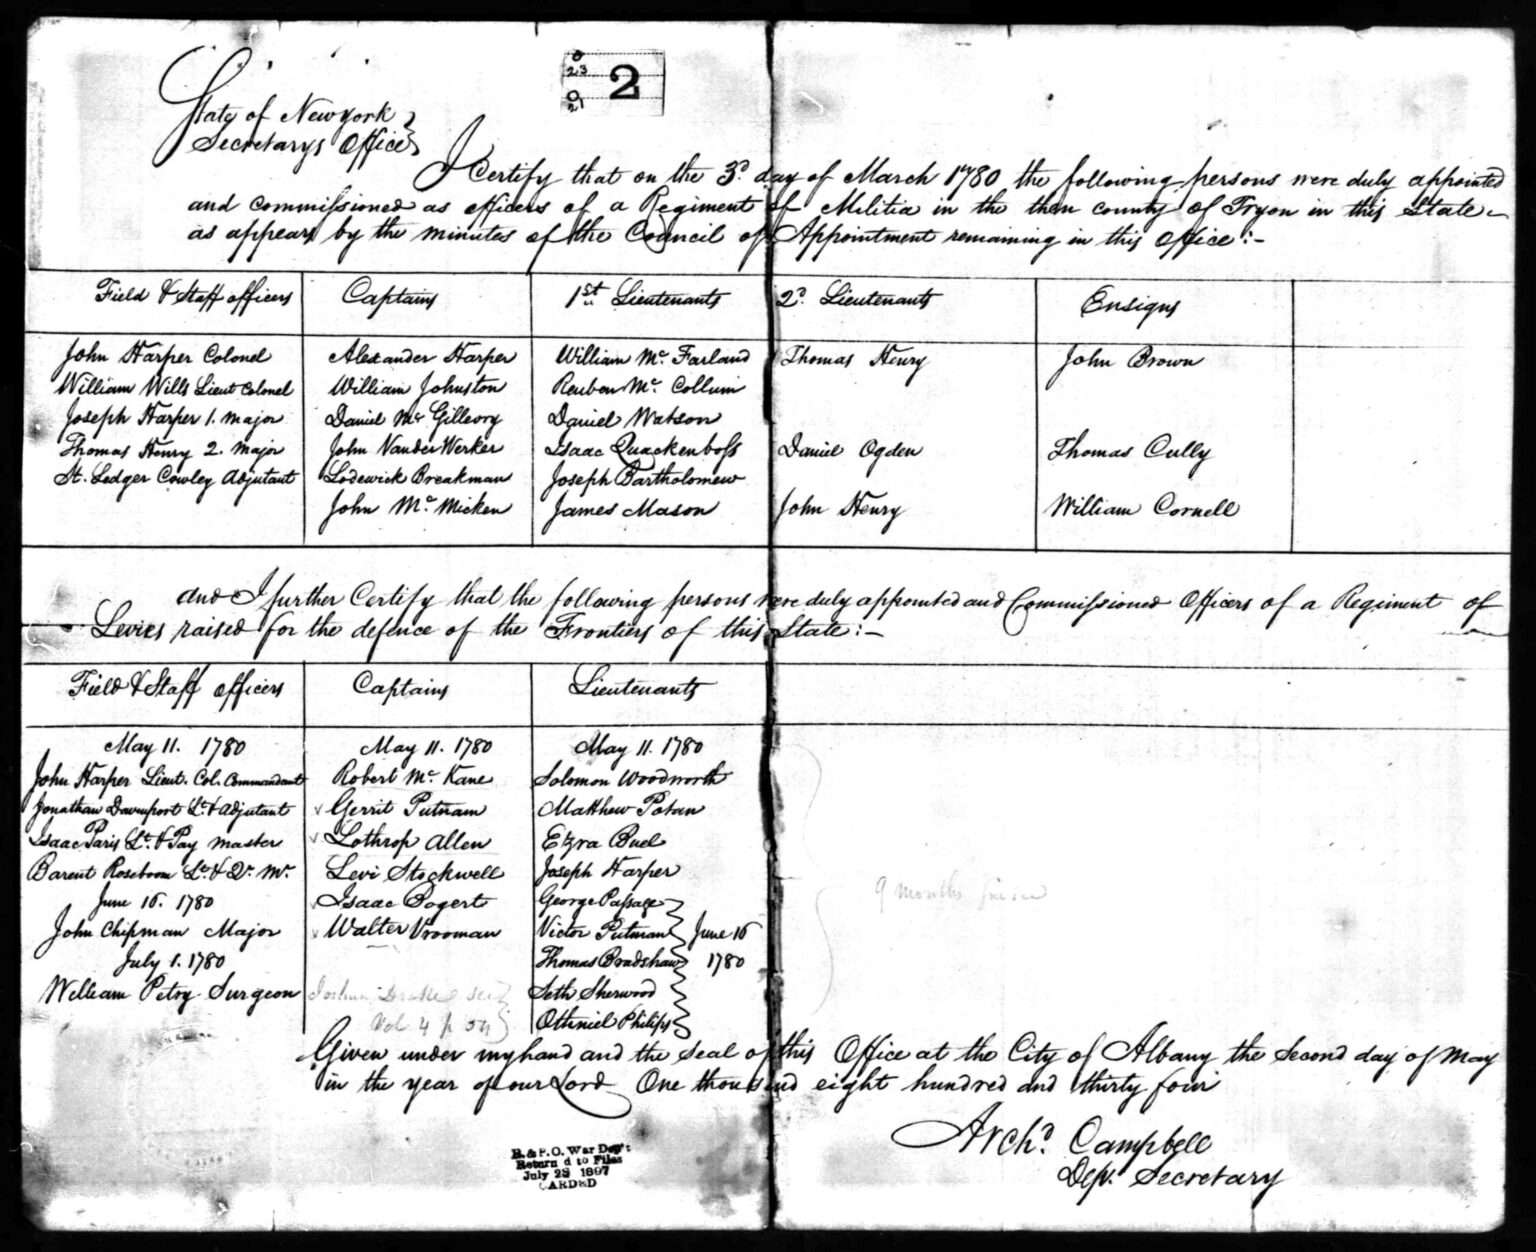 0
23
0
21
2
State of New york
Secretarys Office
I Certify that on the 3d. day of March 1780 the following persons were duly appointed
and commissioned as officers of a Regiment of Militia in the then county of Tryon in this State
as appears by the minutes of the Council of Appointment remaining in this office:-
Field & Staff officers Captains 1st Lieutenants 2d. Lieutenants Ensigns
John Harper Colonel Alexander Harper William Mc. Farland Thomas Henry John Brown
William Wills Lieut Colonel William Johnston Reuben Mc. Collum
Joseph Harper 1. Major Daniel Mc Gilleory Daniel Watson
Thomas Henry 2. Major John VanderWerker Isaac Quackenboss Daniel Ogden Thomas Cully
St. Ledger Cowley Adjutant Lodewick Breakman Joseph Bartholomew
John Mc. Micken James Mason John Henry William Cornell
and I further Certify that the following persons were duly appointed and Commissioned Officers of a Regiment of
Levies raised for the defence of the Frontiers of this State:-
Field & Staff officers Captains Lieutenants
May 11. 1780 May 11. 1780 May 11. 1780
John Harper Lieut. Col. Commandant Robert Mc. Kane Solomon Woodworth
Jonathan Davenport Lt. & Adjutant Gerrit Putnam Matthew Potan
Isaac Paris Lt. & Pay Master Lothrop Allen Ezra Buel
Barent Roseboom Lt. & Qr. Mr. Levi Stockwell Joseph Harper
June 16. 1780 Isaac Bogert George Passage
John Chipman Major Walter Vrooman Victor Putman June 16
July 1. 1780 Thomas Bradshaw 1780
William Petry Surgeon Joshua Drake see Seth Sherwood
Vol 4 p Othniel Philips
9 months
Given under my hand and the seal of this Office at the City of Albany the Second day of May
in the year of our Lord One thousand eight hundred and thirty four
Archd. Campbell
Dep. Secretary
R. & P. O. War Dep't
Returned to Files
July 28 1897
CARDED